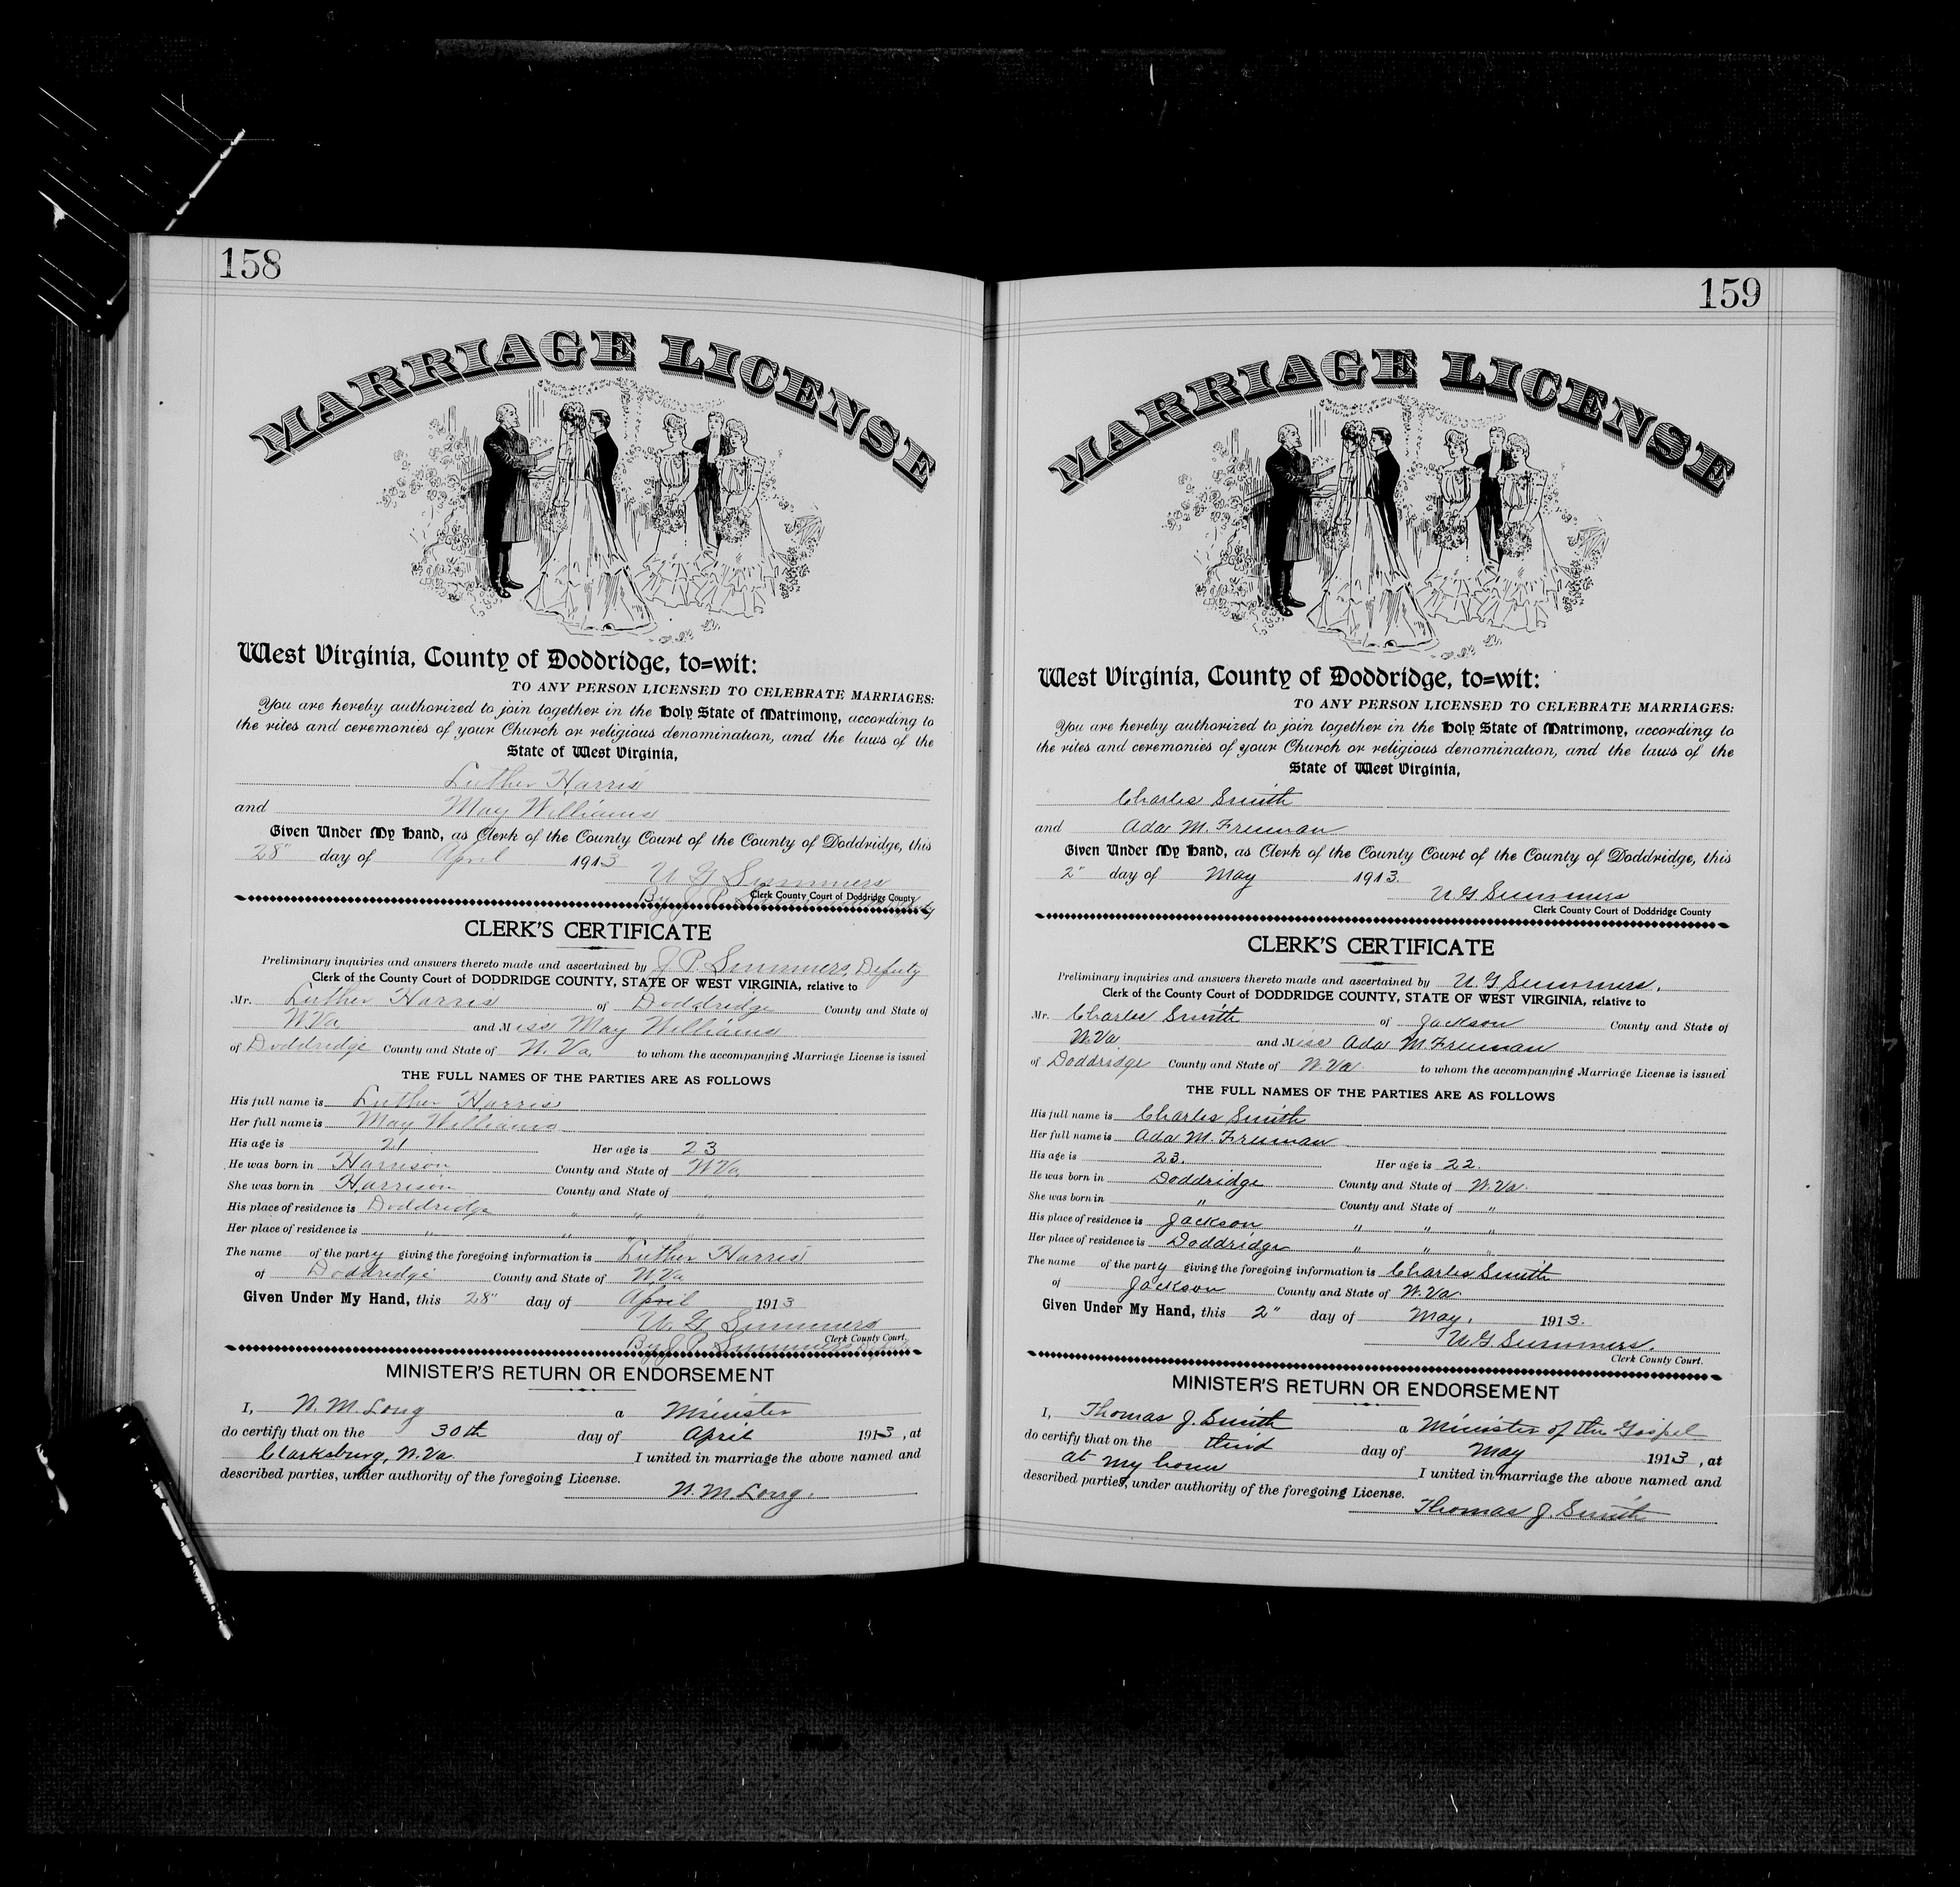 158
MARRIAGE LICENSE
West Virginia, County of Doddridge, to=wit:
TO ANY PERSON LICENSED TO CELEBRATE MARRIAGES:
You are hereby authorized to join together in the Holy State of Matrimony, according to
the rites and ceremonies of your Church or religious denomination, and the laws of the
State of West Virginia,
Luther Harris
and May Williams
Given Under My Hand, as Clerk of the County Court of the County of Doddridge, this
28" day of April 1913
U G Summers
Clerk County Court of Doddridge County
By J P Summers Deputy
CLERK'S CERTIFICATE
Preliminary inquiries and answers thereto made and ascertained by J P. Summers, Deputy
Clerk of the County Court of DODDRIDGE COUNTY, STATE OF WEST VIRGINIA, relative to
Mr. Luther Harris of Doddridge County and State of
W.Va and Miss May Williams
of Doddridge County and State of W. Va. to whom the accompanying Marriage License is issued
THE FULL NAMES OF THE PARTIES ARE AS FOLLOWS
His full name is Luther Harris
Her full name is May Williams
His age is 21 Her age is 23
He was born in Harrison County and State of W.Va
She was born in Harrison County and State of "
His place of residence is Doddridge " " "
Her place of residence is " " " "
The name of the party giving the foregoing information is Luther Harris
of Doddridge County and State of W.Va
Given Under My Hand, this 28" day of April 1913
U. G. Summers
Clerk County Court.
By J P Summers Deputy
MINISTER'S RETURN OR ENDORSEMENT
I, N. M. Long a Minister
do certify that on the 30th day of April 1913, at
Clarksburg, W.Va. I united in marriage the above named and
described parties, under authority of the foregoing License.
N. M. Long.
159
MARRIAGE LICENSE
West Virginia, County of Doddridge, to=wit:
TO ANY PERSON LICENSED TO CELEBRATE MARRIAGES:
You are hereby authorized to join together in the Holy State of Matrimony, according to
the rites and ceremonies of your Church or religious denomination, and the laws of the
State of West Virginia,
Charles Smith
and Ada M. Freeman
Given Under My Hand, as Clerk of the County Court of the County of Doddridge, this
2" day of May 1913.
U. G. Summers
Clerk County Court of Doddridge County
CLERK'S CERTIFICATE
Preliminary inquiries and answers thereto made and ascertained by U. G. Summers.
Clerk of the County Court of DODDRIDGE COUNTY, STATE OF WEST VIRGINIA, relative to
Mr. Charles Smith of Jackson County and State of
W.Va. and Miss Ada M. Freeman
of Doddridge County and State of W.Va. to whom the accompanying Marriage License is issued
THE FULL NAMES OF THE PARTIES ARE AS FOLLOWS
His full name is Charles Smith
Her full name is Ada M. Freeman
His age is 23. Her age is 22.
He was born in Doddridge County and State of W.Va.
She was born in " County and State of "
His place of residence is Jackson " " "
Her place of residence is Doddridge " " "
The name of the party giving the foregoing information is Charles Smith
of Jackson County and State of W.Va.
Given Under My Hand, this 2" day of May, 1913.
U. G. Summers.
Clerk County Court.
MINISTER'S RETURN OR ENDORSEMENT
I, Thomas J. Smith a Minister of the Gospel
do certify that on the third day of May 1913, at
at my home I united in marriage the above named and
described parties, under authority of the foregoing License.
Thomas J. Smith